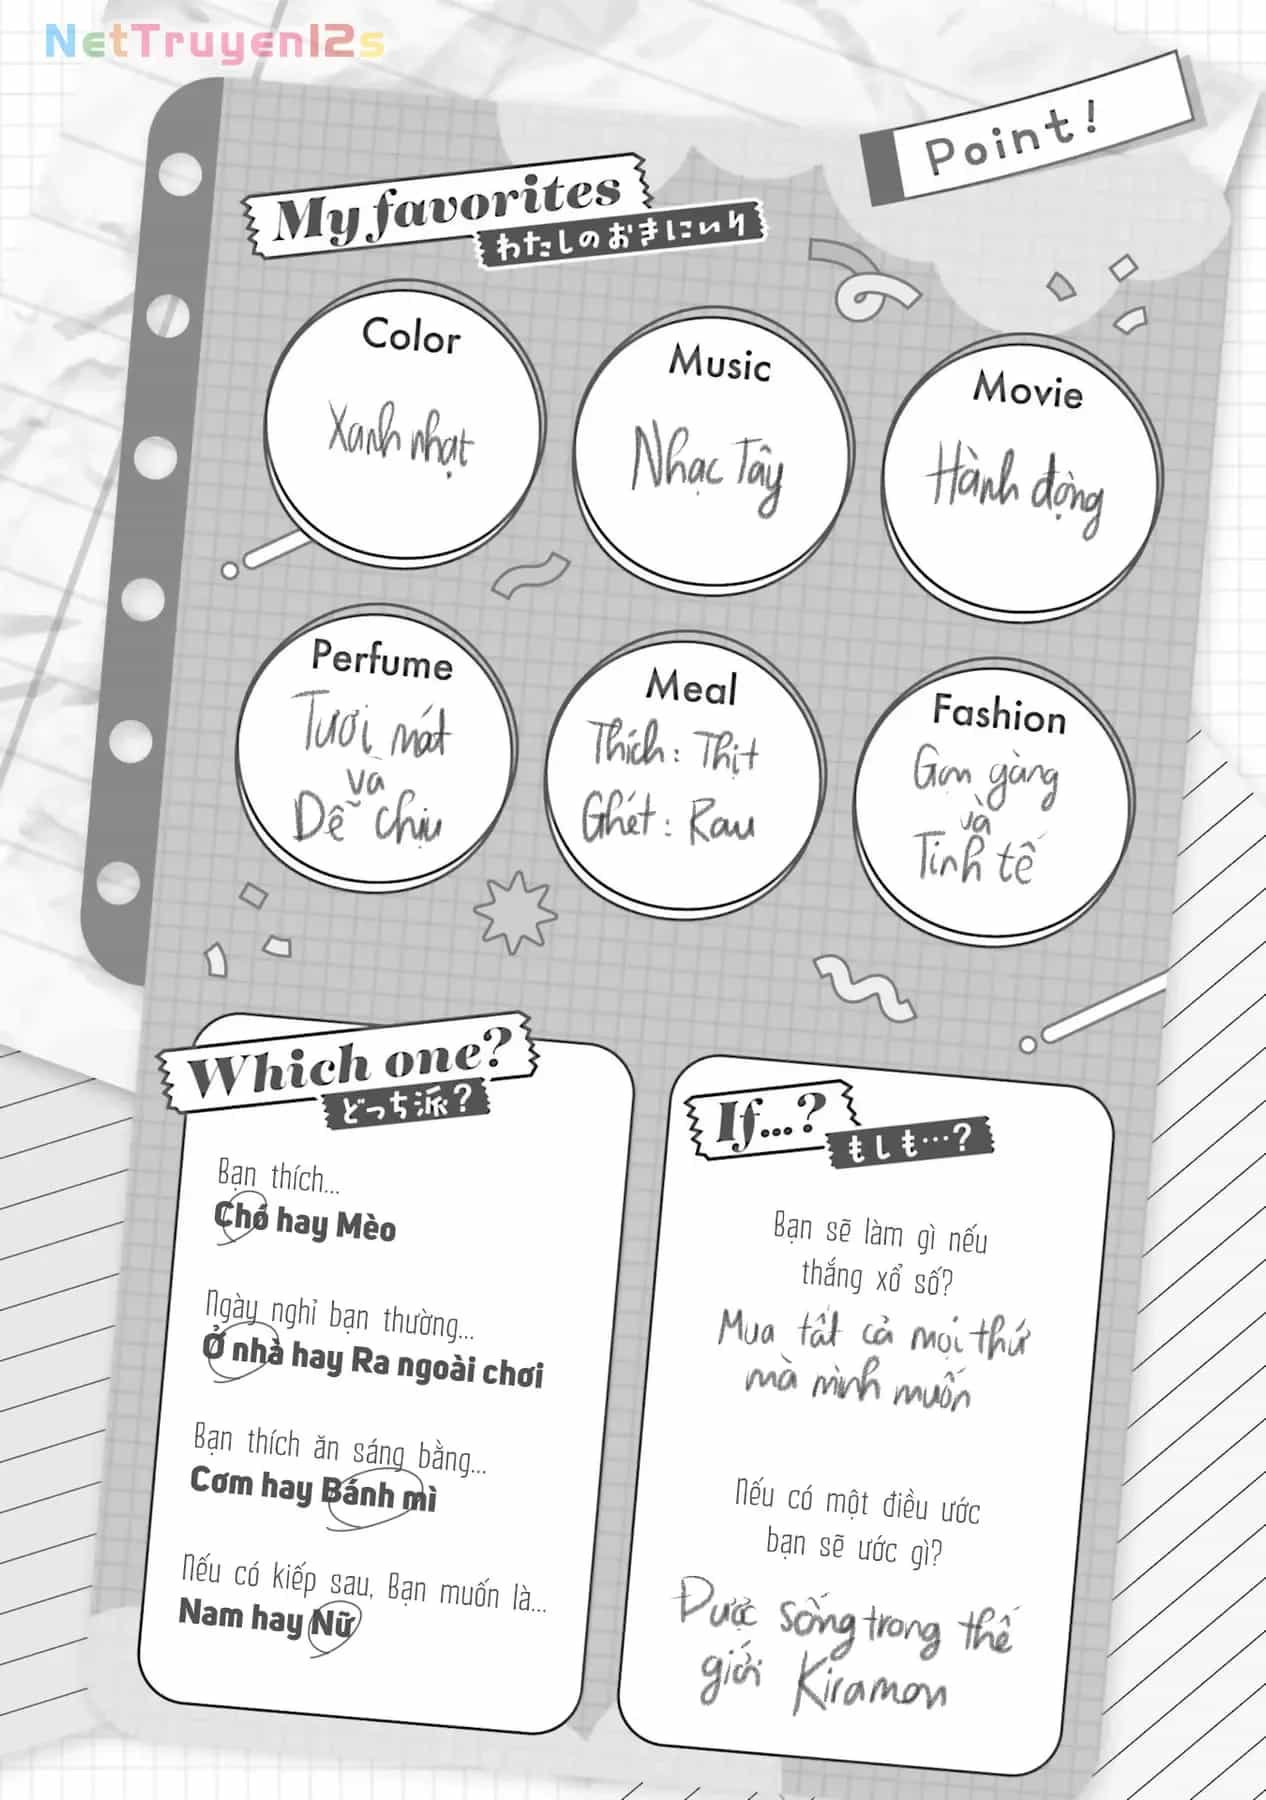 NetTruyen12s
Point!
My favorites
わたしのおきにいり
Color
Xanh nhạt
Music
Nhạc Tây
Movie
Hành động
Perfume
Tươi mát
và
Dễ chịu
Meal
Thích: Thịt
Ghét: Rau
Fashion
Gọn gàng
và
Tinh tế
Which one?
どっち派?
Bạn thích...
Chó hay Mèo
Ngày nghỉ bạn thường...
Ở nhà hay Ra ngoài chơi
Bạn thích ăn sáng bằng...
Cơm hay Bánh mì
Nếu có kiếp sau, Bạn muốn là...
Nam hay Nữ
If...?
もしも…?
Bạn sẽ làm gì nếu
thắng xổ số?
Mua tất cả mọi thứ
mà mình muốn
Nếu có một điều ước
bạn sẽ ước gì?
Được sống trong thế
giới Kiramon